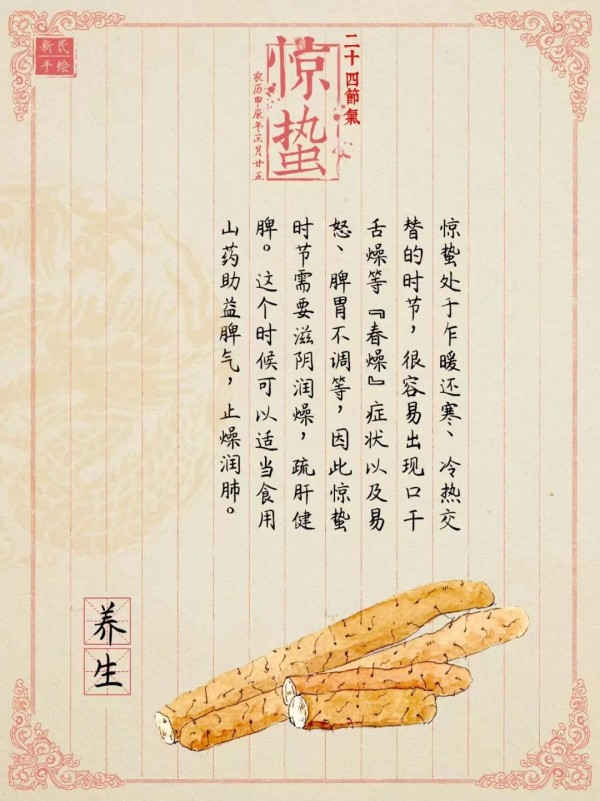 新民
手绘
二十四節氣
惊蛰
农历甲辰年正月廿五
惊蛰处于乍暖还寒、冷热交
替的时节，很容易出现口干
舌燥等『春燥』症状以及易
怒、脾胃不调等，因此惊蛰
时节需要滋阴润燥，疏肝健
脾。这个时候可以适当食用
山药助益脾气，止燥润肺。
养生